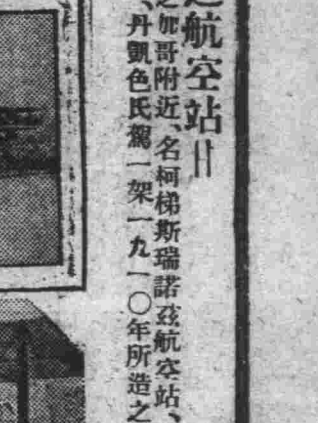 航空站＝
加哥附近、名柯梯斯瑞諾茲航空站、
、丹凱色氏駕一架一九一〇年所造之